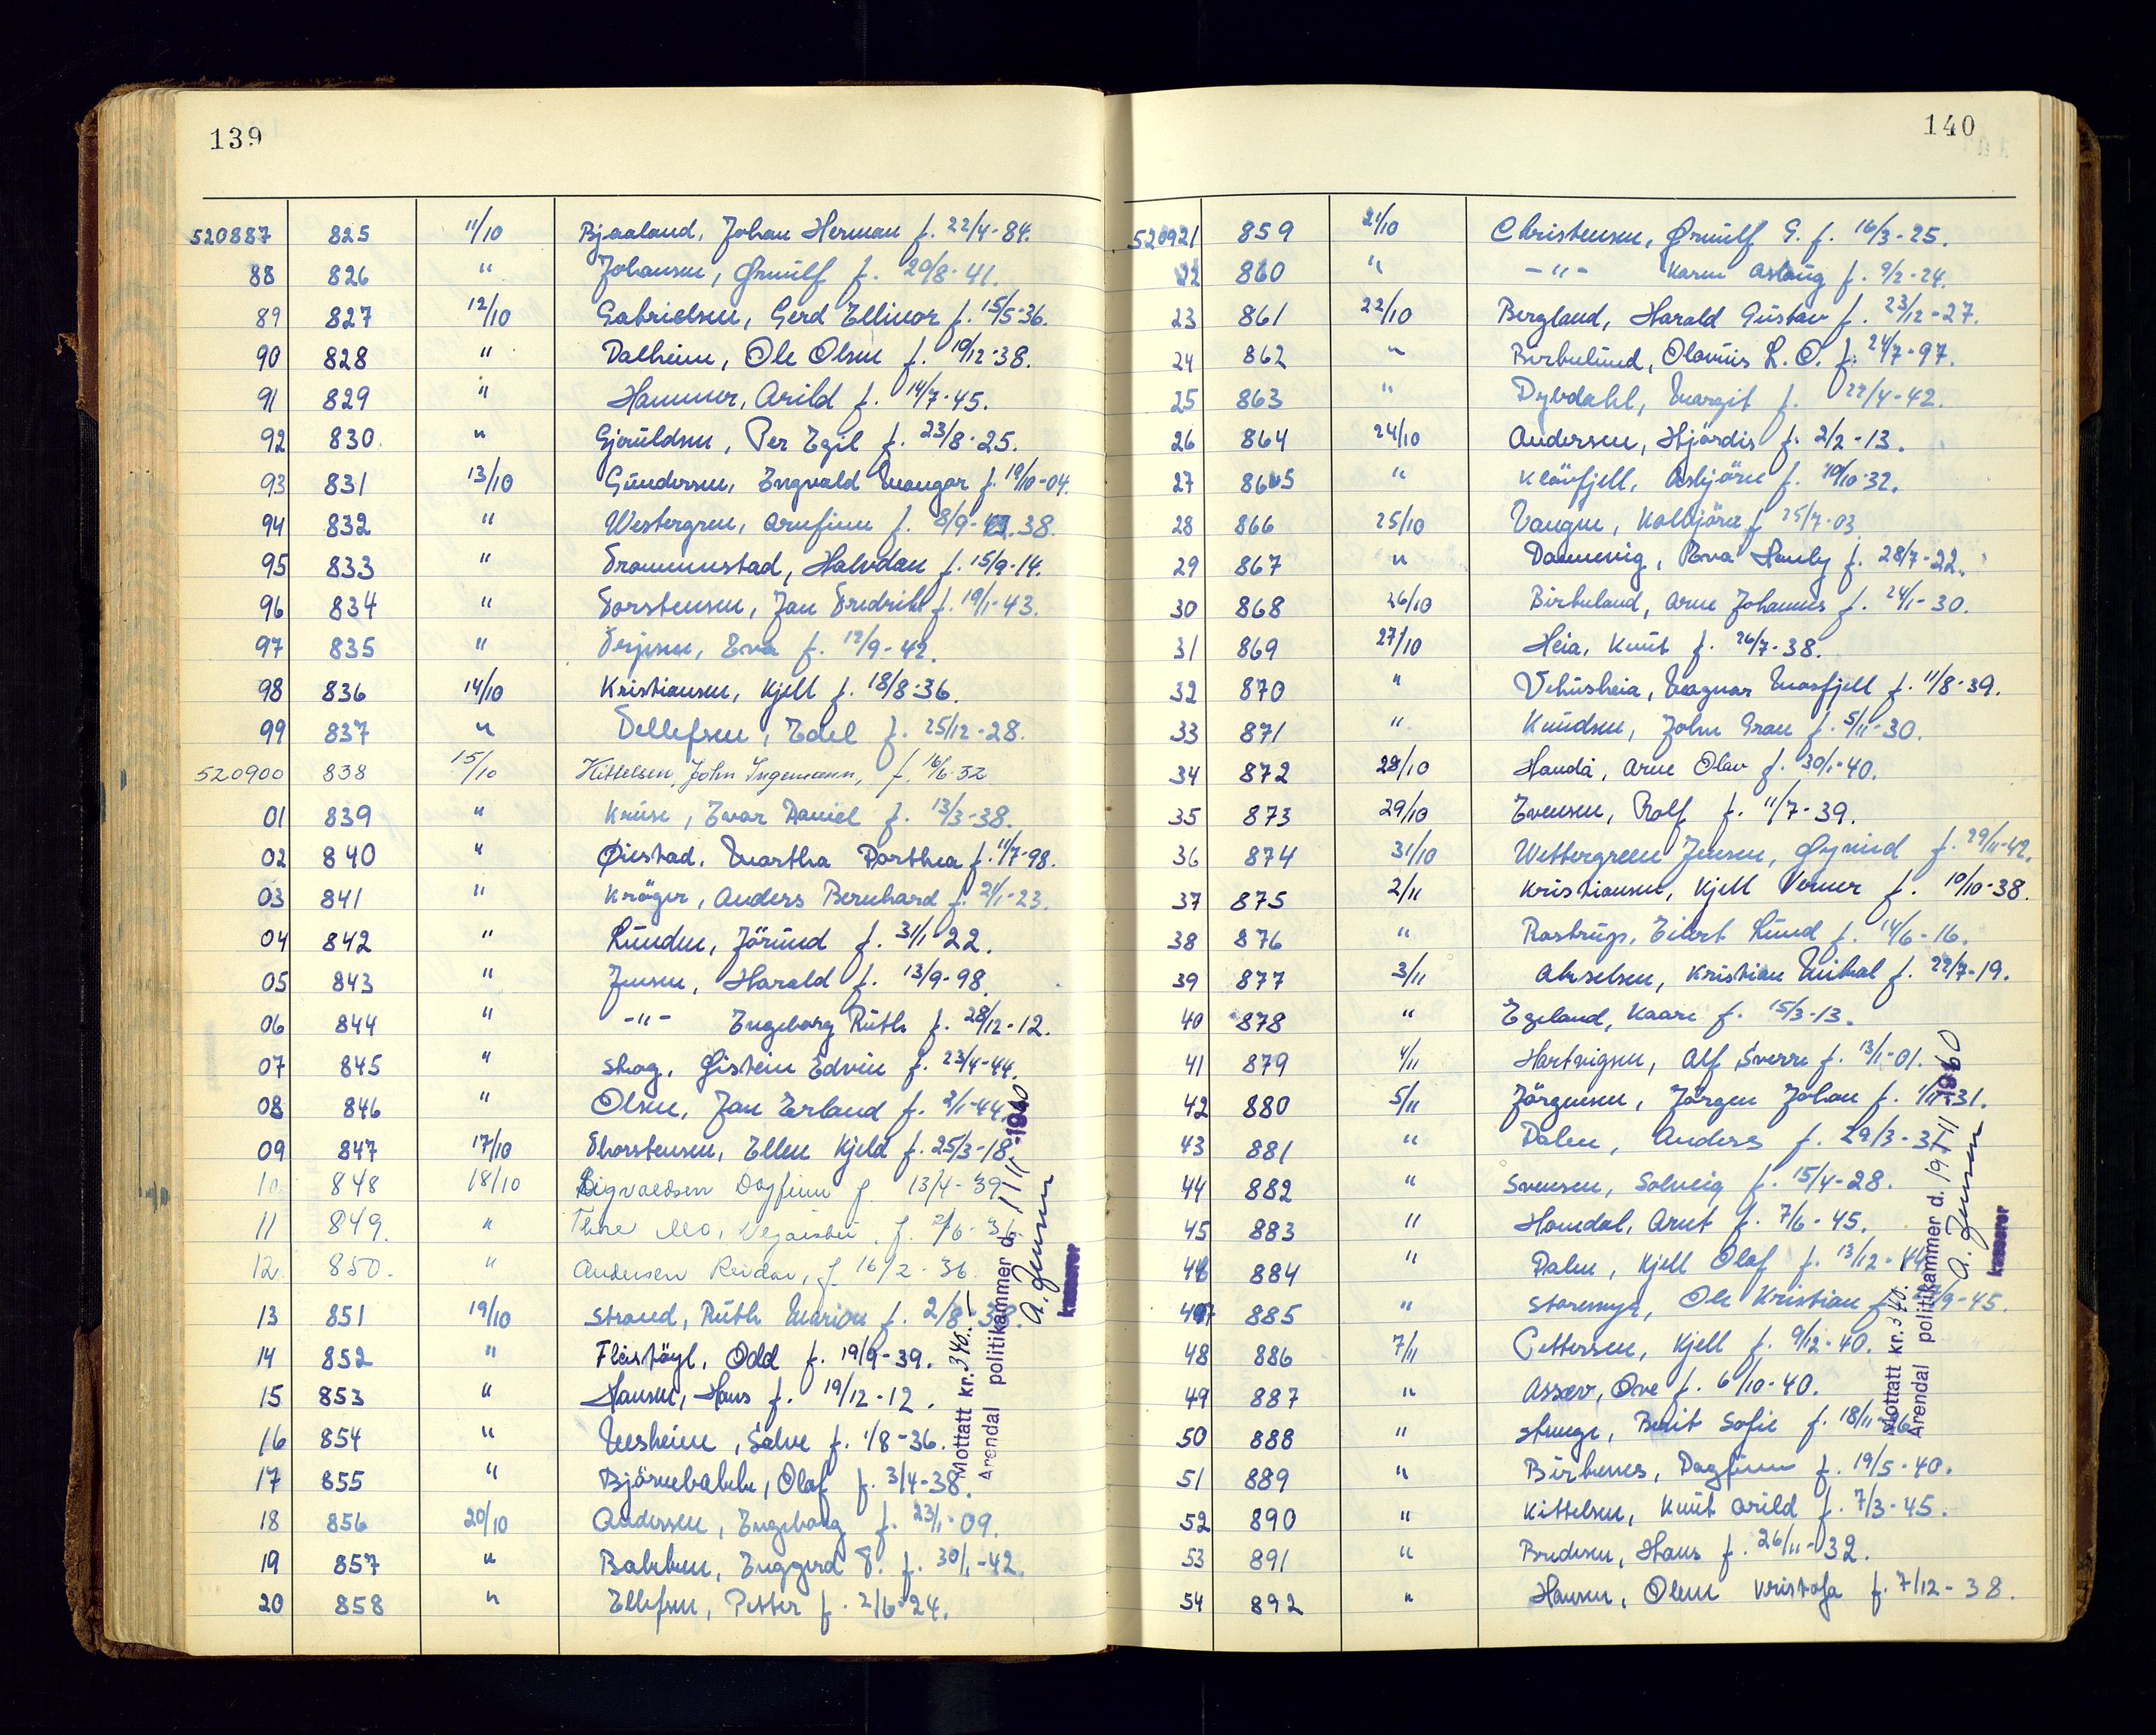 139
520887 825 11/10 Bjaaland, Johan Herman f. 22/4-84.
88 826 " Johansen, Ørnulf f. 20/8-41.
89 827 12/10 Gabrielsen, Gerd Ellinor f. 15/5-36.
90 828 " Dalheim, Ole Olsen f. 19/12-38.
91 829 " Hammer, Arild f. 14/7-45.
92 830. " Gjeruldsen, Per Egil f. 23/8-25.
93 831 13/10 Gundersen, Engvald f. 19/10-04.
94 832 " Westergren, Arnfinn f. 8/9-38.
95 833 " Trommestad, Halvdan f. 15/9-14.
96 834 " Torstensen, Jan Fredrik f. 19/1-43.
97 835 " Terjesen, Eva f. 12/9-42.
98 836 14/10 Kristiansen, Kjell f. 18/8-36.
99 837 " Tellefsen, Edel f. 25/12-28.
520900 838 15/10 Kittelsen, John Ingemann, f. 16/6-32
01 839 " Kruse, Evar Daniel f. 13/3-38.
02 840 " Øiestad, Martha Dorthea f. 11/7-98.
03 841 " Kröger, Anders Bernhard f. 2/1-23.
04 842 " Lunden, Jörund f. 31/1-22.
05 843 " Jensen, Harald f. 13/9-98.
06 844 " -"- Engeborg Ruth f. 28/12-12.
07 845 " Skog, Øistein Edvin f. 23/4-44.
08 846 " Olsen, Jan Erland f. 2/1-44.
09 847 17/10 Thorstensen, Ellen Kjeld f. 25/3-18
10 848 18/10 Sigvaldsen Dagfinn f. 13/4-39
11 849. " Mo, f. 2/6-36
12. 850. " Andersen Reidar, f. 16/2-36
13 851 19/10 Strand, Ruth Marion f. 2/8-38.
14 852 " Fleistöyl, Odd f. 19/9-39.
15 853 " Hansen, Hans f. 19/12-12.
16 854 " Nesheim, Salve f. 1/8-36.
17 855 " Björnebakke, Olaf f. 3/4-38.
18 856 20/10 Andersen, Engeborg f. 23/1-09.
19 857 " Bakken, Inggerd T. f. 30/1-42.
20 858 " Ellefsen, Petter f. 2/6-24.
Mottatt kr. 340.-
Arendal politikammer d. 1/11-1960
A. Jensen
kasserer
140
520921 859 21/10 Christensen, Ørnulf G. f. 16/3-25.
22 860 " -"- Karen Aslaug f. 9/2-24.
23 861 22/10 Bergland, Harald Gustav f. 23/12-27.
24 862 " Birkelund, Olavus L. O. f. 24/7-97.
25 863 " Dybdahl, Margit f. 22/4-42.
26 864 24/10 Andersen, Hjördis f. 2/2-13.
27 865 " Klövfjell, Asbjörn f. 10/10-32.
28 866 25/10 Vangen, Kolbjörn f. 25/7-03
29 867 " Dannevig, Eva f. 28/7-22.
30 868 26/10 Birkeland, Arne Johannes f. 24/1-30.
31 869 27/10 Heia, Knut f. 26/7-38.
32 870 " Vehusheia, Magnar Mosfjell f. 11/8-39.
33 871 " Knudsen, John Gran f. 5/11-30.
34 872 28/10 Hauda, Arne Olav f. 30/1-40.
35 873 29/10 Evensen, Rolf f. 11/7-39.
36 874 31/10 Wettergreen Jensen, Øyvind f. 29/11-42.
37 875 2/11 Kristiansen, Kjell Verner f. 10/10-38.
38 876 " Rostrup, Eilert Lund f. 14/6-16.
39 877 3/11 Akselsen, Kristian Mikal f. 22/7-19.
40 878 " Egeland, Kaare f. 15/3-13.
41 879 4/11 Hartvigsen, Alf Sverre f. 13/1-01.
42 880 5/11 Jörgensen, Jörgen Johan f. 1/11-31.
43 881 " Dalen, Anders f. 29/3-31
44 882 " Svensen, Solveig f. 15/4-28.
45 883 " Homdal, Arnt f. 7/6-45.
46 884 " Dalen, Kjell Olaf f. 13/12-44
47 885 " Storemyr, Ole Kristian f. /9-45.
48 886 7/11 Pettersen, Kjell f. 9/12-40.
49 887 " Assev, Ove f. 6/10-40.
50 888 " Stenge, Berit Sofie f. 18/11-
51 889 " Birkenes, Dagfinn f. 19/5-40.
52 890 " Kittelsen, Knut Arild f. 7/3-45.
53 891 " Bredesen, Hans f. 26/11-32.
54 892 " Hansen, Olene Kristofa f. 7/12-38.
Mottatt kr. 340.
Arendal politikammer d. 19/11 1960
A. Jensen
kasserer